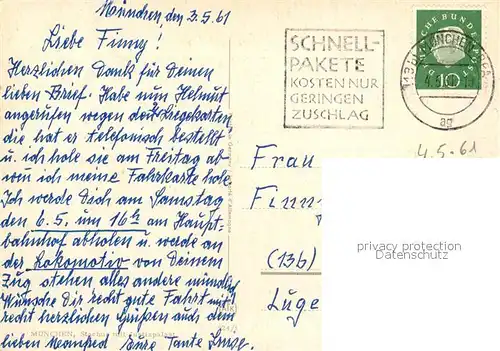 München, den 3.5.61
Liebe Finny!
Herzlichen Dank für Deinen
lieben Brief. Habe nun Helmut
angerufen wegen den Liegekarten
die hat er telefonisch bestellt
u. ich hole sie am Freitag ab
wo ich meine Fahrkarte hole.
Ich werde Dich am Samstag
den 6.5. um 16h am Haupt-
bahnhof abholen u. werde an
der Lokomotiv von Deinem
Zug stehen alles andere mündlich
Wünsche Dir recht gute Fahrt mit
recht herzlichen Grüßen auch dem
lieben Manfred Eure Tante
MÜNCHEN,
SCHNELL-
PAKETE
KOSTEN NUR
GERINGEN
ZUSCHLAG
10
ag
4.5.61
Frau
Finn
(13b)
Lüge
privacy protection
watermark